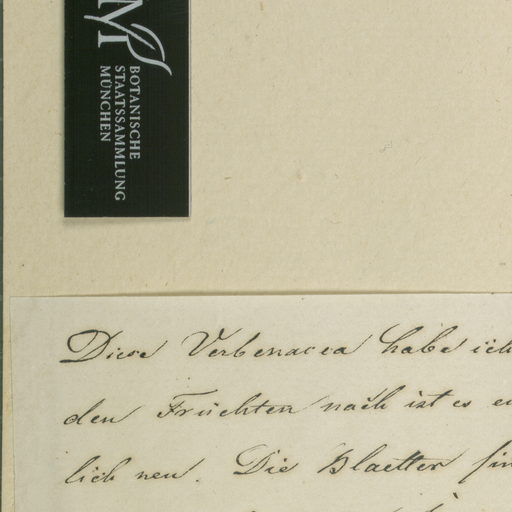 M
BOTANISCHE
STAATSSAMMLUNG
MÜNCHEN
Diese Verbenacea habe ich
den Früchten nach ist es
lich neu. Die Blaetter